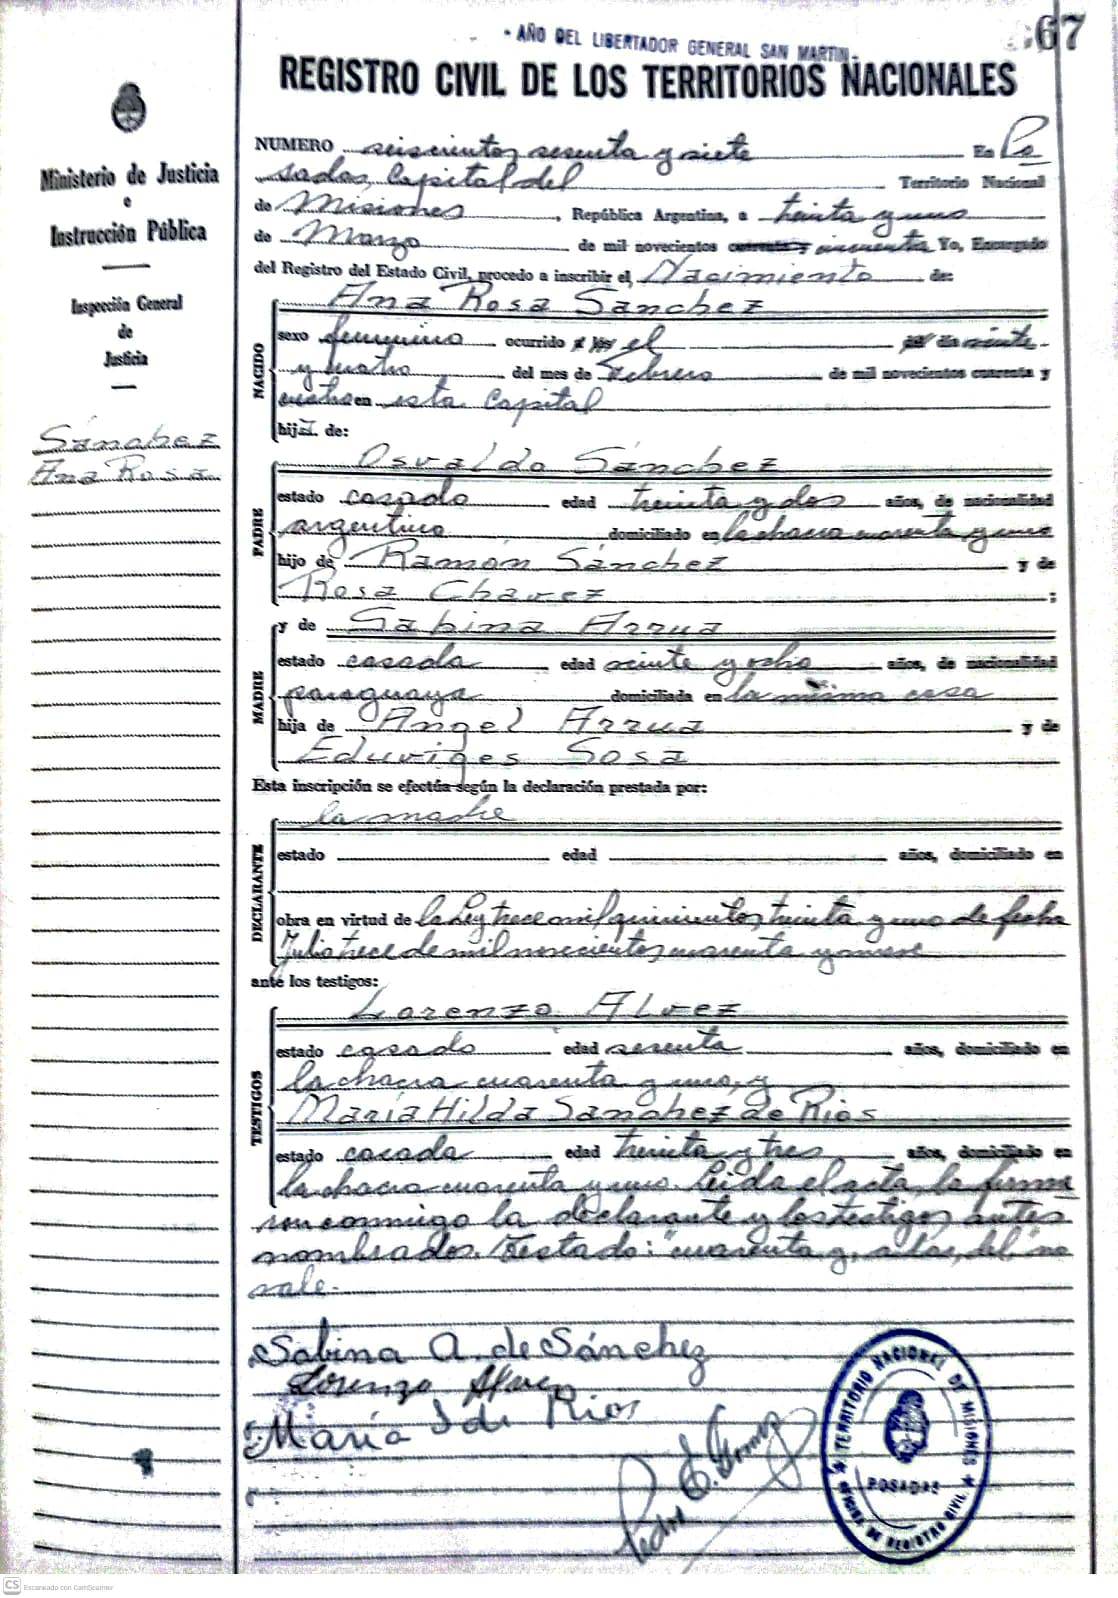 - AÑO DEL LIBERTADOR GENERAL SAN MARTIN -
67
REGISTRO CIVIL DE LOS TERRITORIOS NACIONALES
Ministerio de Justicia
e
Instrucción Pública
Inspección General
de
Justicia
Sánchez
Ana Rosa
NUMERO seiscientos sesenta y siete En Po
sadas, Capital del Territorio Nacional
de Misiones, República Argentina, a treinta y uno
de Marzo de mil novecientos cuarenta y cincuenta Yo, Encargado
del Registro del Estado Civil, procedo a inscribir el Nacimiento de:
NACIDO
Ana Rosa Sánchez
sexo femenino ocurrido el veinte
y cuatro del mes de Febrero de mil novecientos cuarenta y
cuatro en esta Capital
hija de:
PADRE
Osvaldo Sánchez
estado casado edad treinta y dos años, de nacionalidad
argentino domiciliado en la chacra cuarenta y uno
hijo de Ramón Sánchez y de
Rosa Chavez ;
MADRE
y de Sabina Arrua
estado casada edad veinte y ocho años, de nacionalidad
paraguaya domiciliada en la misma casa
hija de Angel Arrua y de
Eduviges Sosa
Esta inscripción se efectúa según la declaración prestada por:
DECLARANTE
la madre
estado edad años, domiciliado en
obra en virtud de la Ley trece mil quinientos treinta y uno de fecha
Julio trece de mil novecientos cuarenta y nueve
ante los testigos:
TESTIGOS
Lorenzo Alvez
estado casado edad sesenta años, domiciliado en
la chacra cuarenta y uno, y
María Hilda Sánchez de Rios
estado casada edad treinta y tres años, domiciliado en
la chacra cuarenta y uno. Leida el acta, la firma
ron conmigo la declarante y los testigos antes
nombrados. Testado: "cuarenta y, a las, del" no
vale.-
Sabina A. de Sánchez
Lorenzo Alvez
María de Rios
Pedro E. Gomez
TERRITORIO NACIONAL DE MISIONES
POSADAS
OFICINA DE REGISTRO CIVIL
CS Escaneado con CamScanner